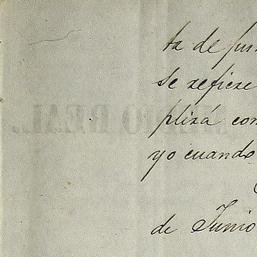 ta de fun
se refiere
plirá con
yo cuando
de Junio
MEDIO REAL.